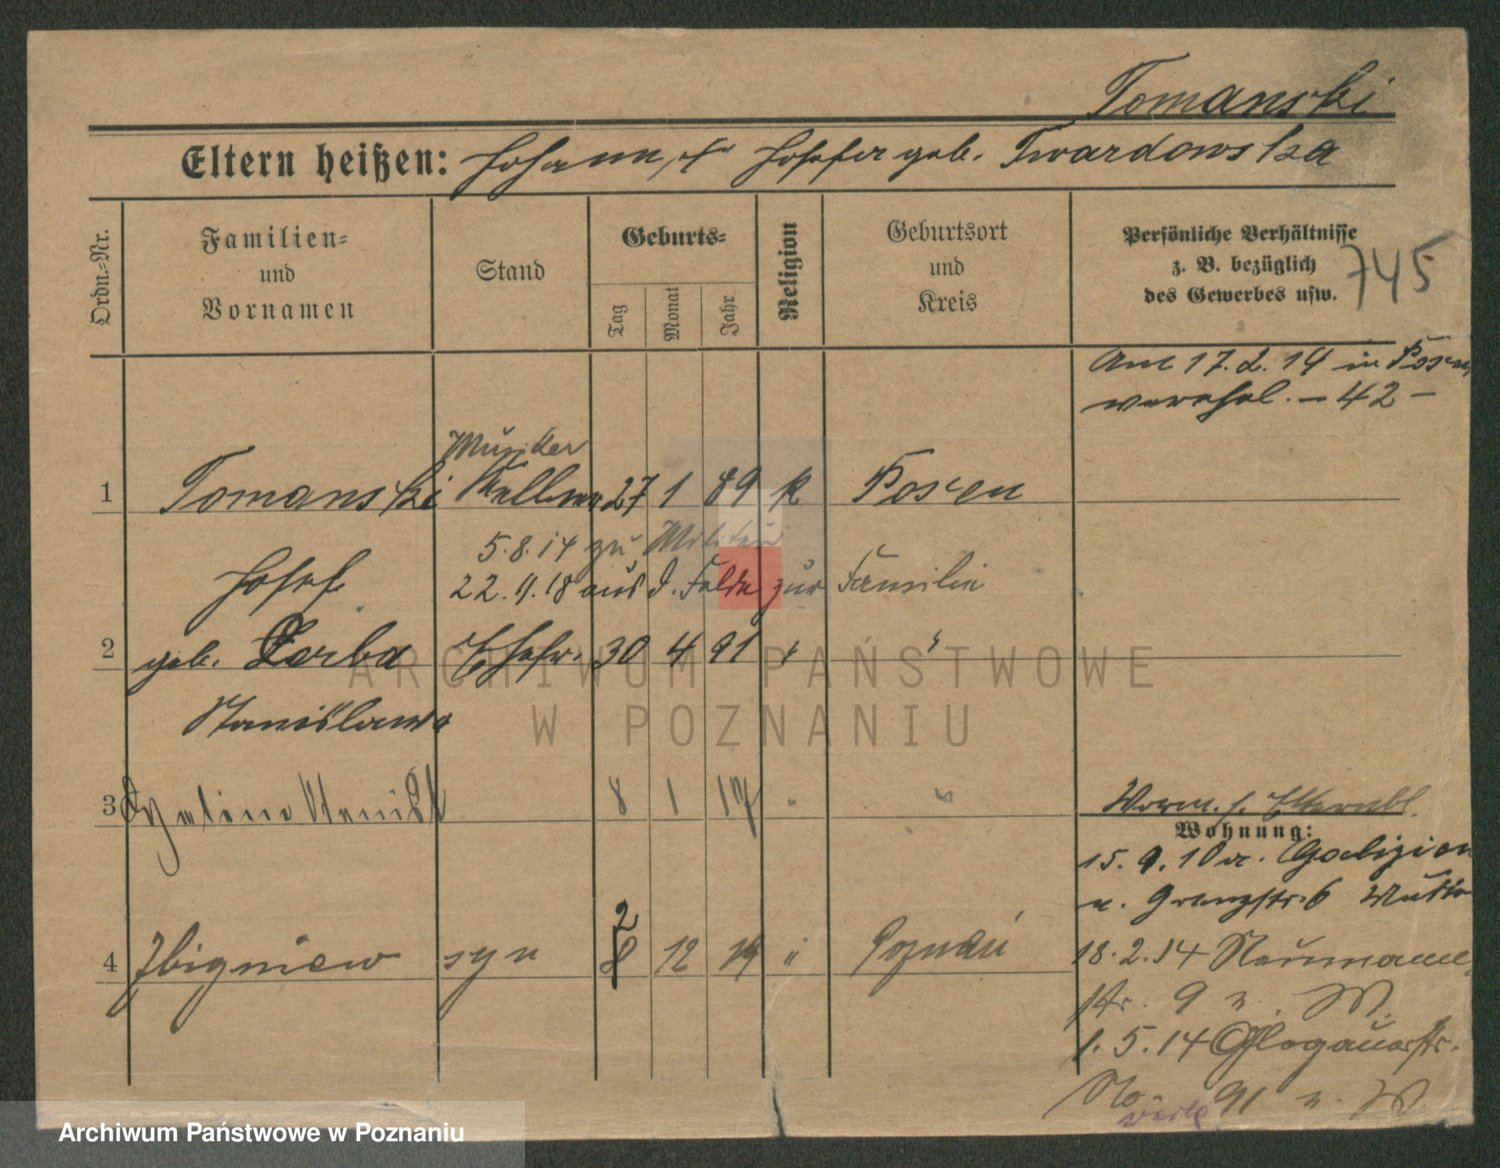 Tomanski
Eltern heißen: Johann, u. Josefa geb. Twardowska
Ordn.=Nr.
Familien=
und
Vornamen
Stand
Geburts=
Tag
Monat
Jahr
Religion
Geburtsort
und
Kreis
Persönliche Verhältnisse
z. B. bezüglich
des Gewerbes usw.
745
Am 17.2.14 in Posen
verehel. – 42 –
Musiker
1 Tomanski Kellner 27 1 89 k Posen
5.8.14 zu Militär
Josef
22.11.18 aus d. Felde zur Familie
2 geb. Ehefr. 30 4 91 "
Stanislawa
3 8 1 17 " "
Wohnung:
15.9.10 v.
u. Grenzstr. 6
2
4 Zbigniew syn 8 12 19 " Poznań
18.2.14 Neumann
str. 9 n. W.
1.5.14 Glogauerstr.
No. 91 n. W.
ARCHIWUM PAŃSTWOWE
W POZNANIU
Archiwum Państwowe w Poznaniu